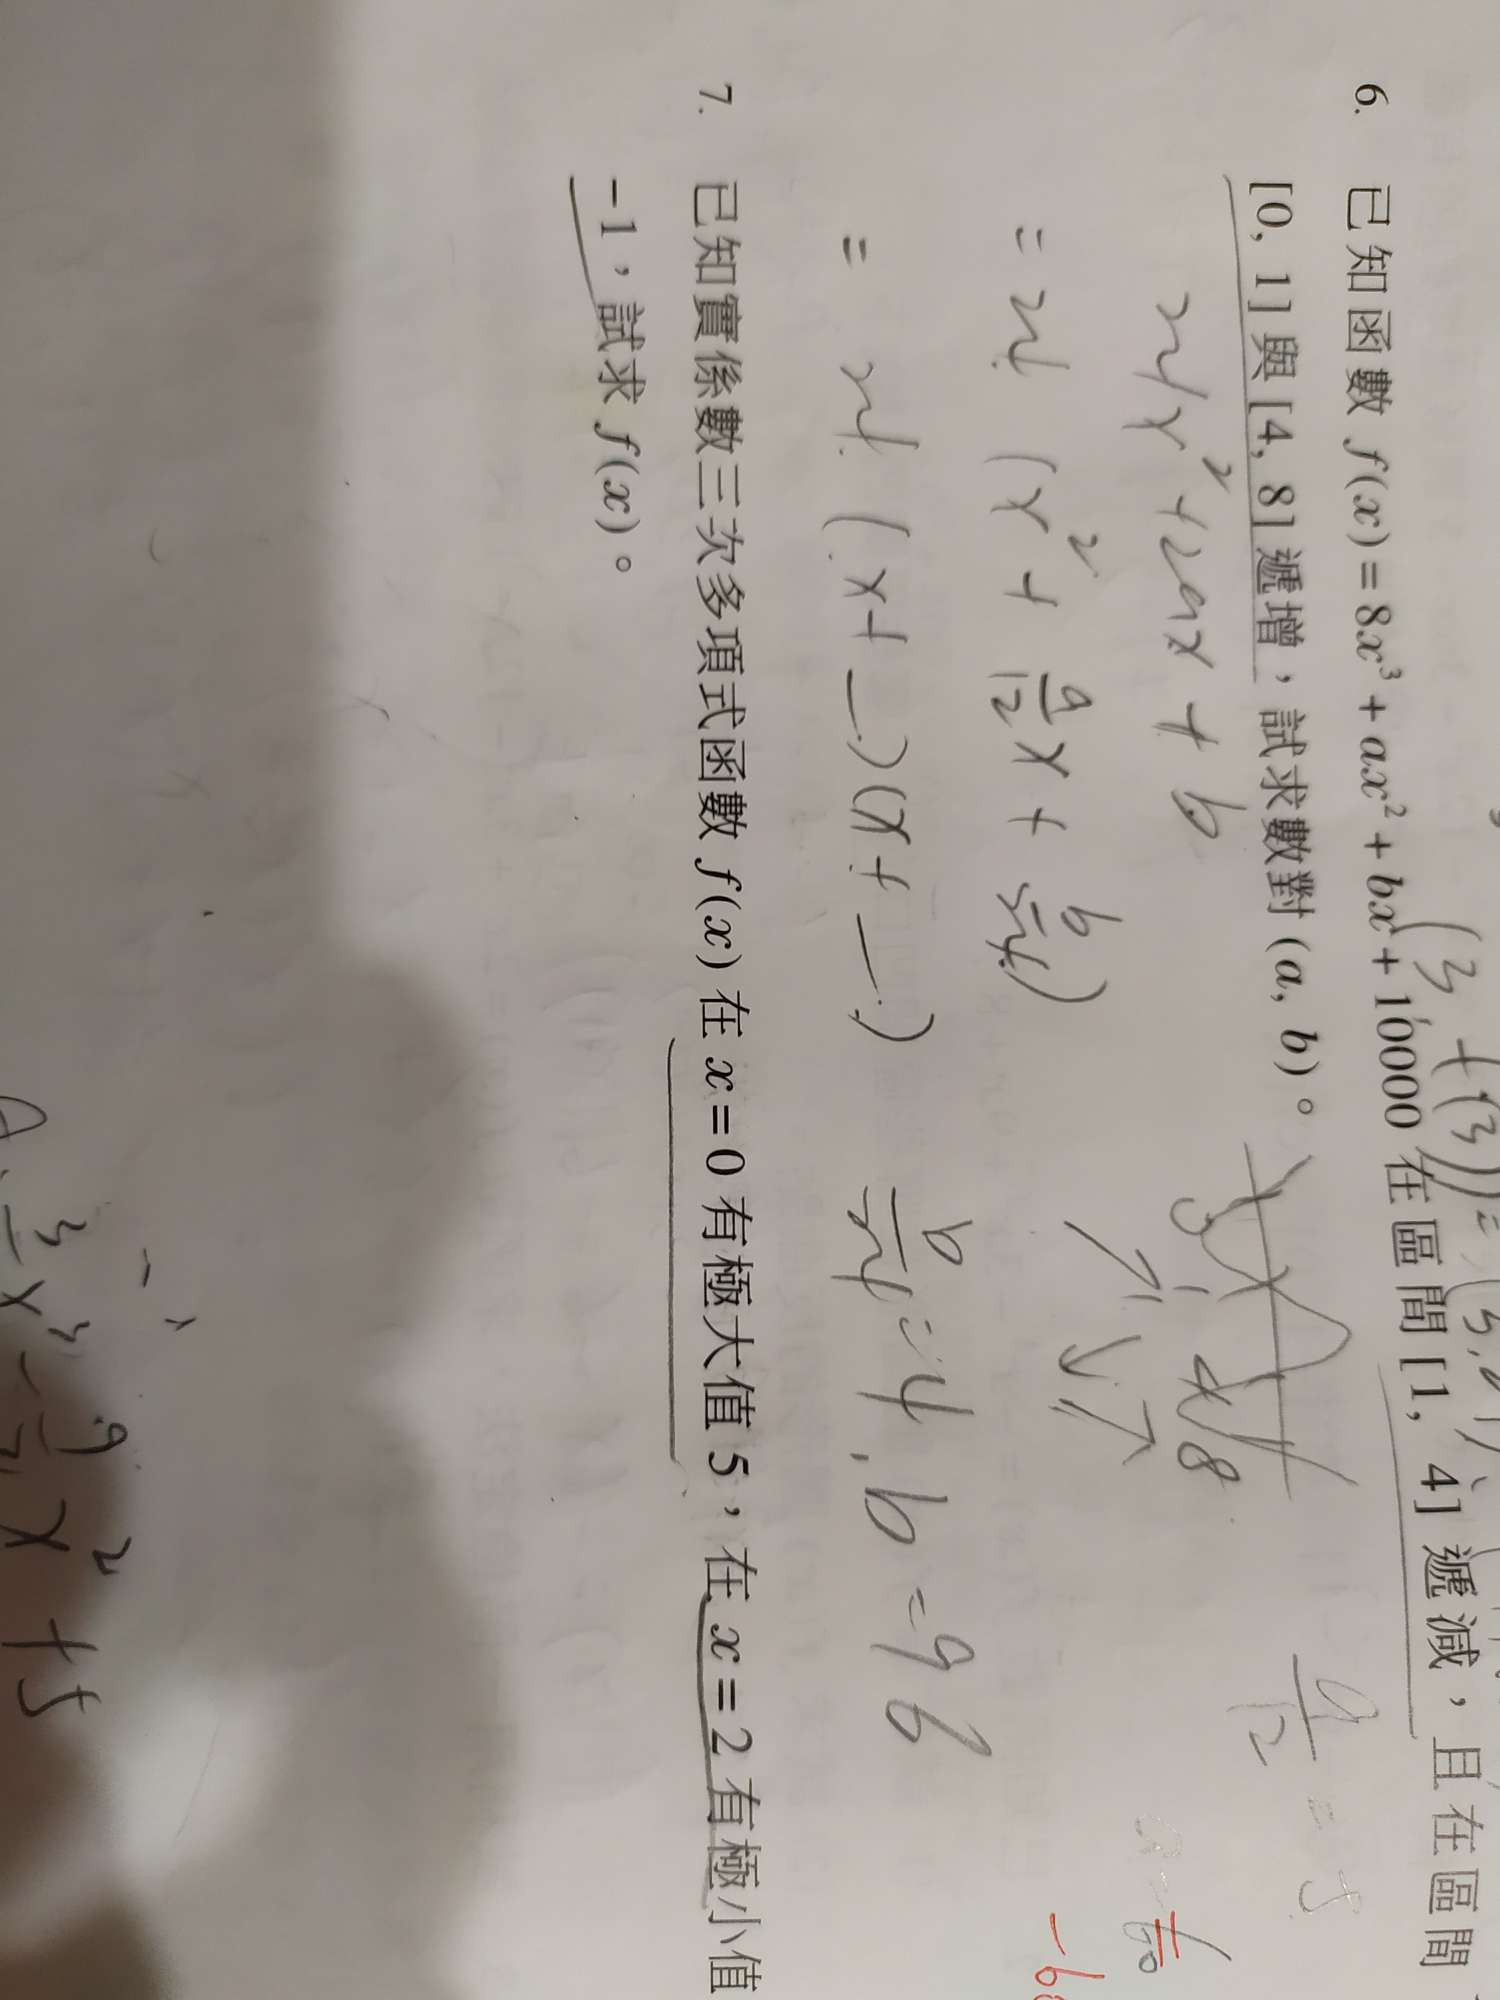 6. 已知函數 f(x)=8x³+ax²+bx+10000 在區間 [1, 4] 遞減，且在區間
[0, 1] 與 [4, 8] 遞增，試求數對 (a, b)。
24x²+2ax+b
=24(x²+a/12 x+b/24)
=24(x+_)(x+_)
b/24=4, b=96
1 4 8
a/12=5
7. 已知實係數三次多項式函數 f(x) 在 x=0 有極大值 5，在 x=2 有極小值
-1，試求 f(x)。